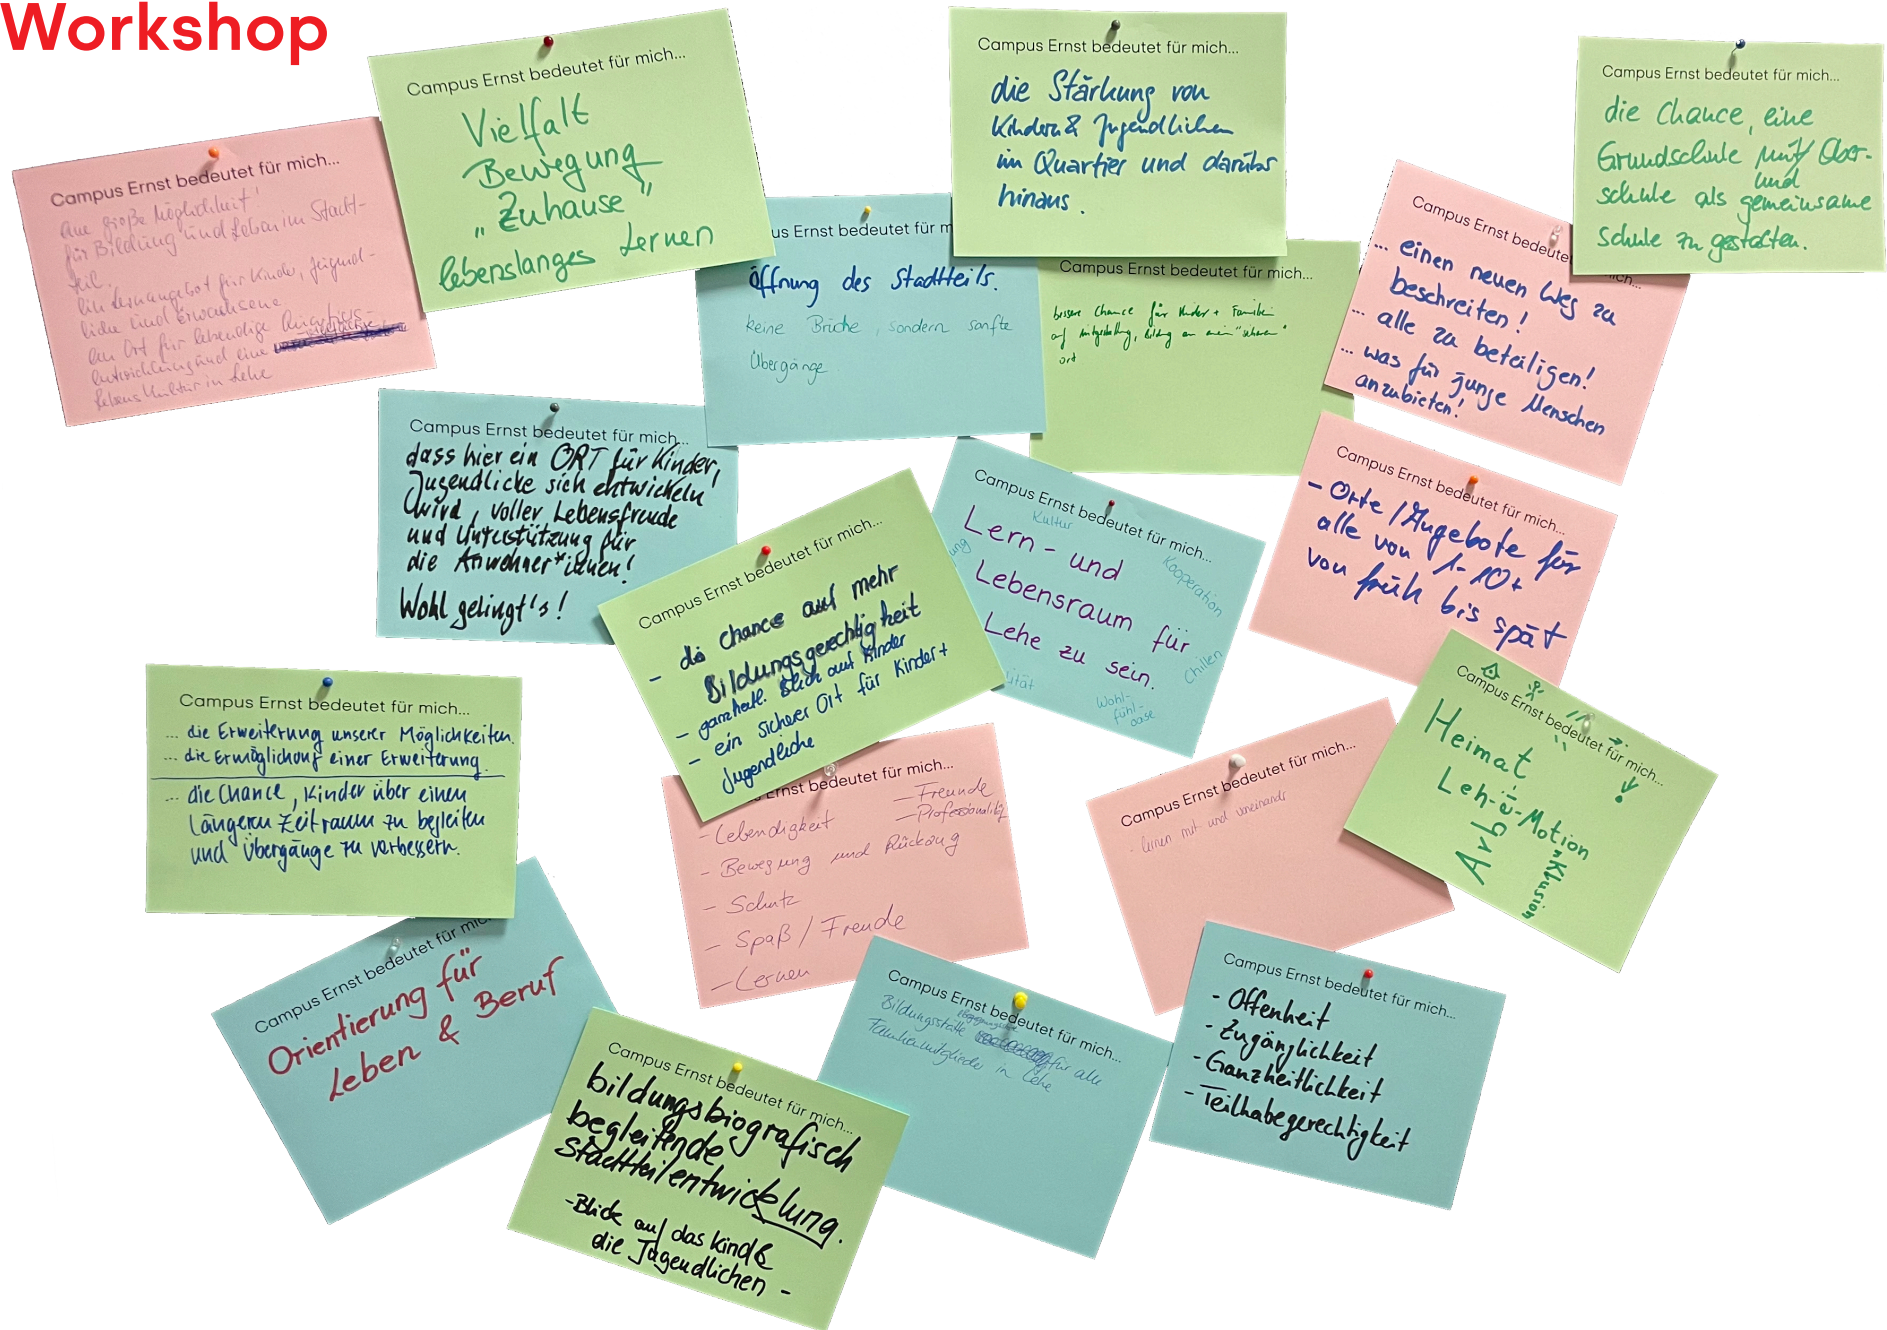 Workshop
Campus Ernst bedeutet für mich...
eine große Möglichkeit!
für Bildung und Leben im Stadt-
teil.
Ein Lernangebot für Kinder, Jugend-
liche und Erwachsene
ein Ort für lebendige Quartiers-
entwicklung und eine
Lebenskultur in Lehe
Campus Ernst bedeutet für mich...
Vielfalt
Bewegung
"Zuhause"
lebenslanges Lernen
us Ernst bedeutet für m
Öffnung des Stadtteils.
keine Brüche, sondern sanfte
Übergänge
Campus Ernst bedeutet für mich...
die Stärkung von
Kindern & Jugendlichen
im Quartier und darüber
hinaus.
Campus Ernst bedeutet für mich...
bessere Chance für Kinder + Familien
auf Mitgestaltung, Bildung an einem "sicheren"
Ort
Campus Ernst bedeute ich...
... einen neuen Weg zu
beschreiten!
... alle zu beteiligen!
... was für junge Menschen
anzubieten!
Campus Ernst bedeutet für mich...
die Chance, eine
Grundschule und Ober-
schule als gemeinsame
Schule zu gestalten.
Campus Ernst bedeutet für mich...
dass hier ein ORT für Kinder,
Jugendliche sich entwickeln
wird, voller Lebensfreude
und Unterstützung für
die Anwohner*innen!
Wohl gelingt's!
Campus Ernst bedeutet für mich...
- die Chance auf mehr
Bildungsgerechtigkeit
- ganzheitl. Blick auf Kinder
- ein sicherer Ort für Kinder +
Jugendliche
Campus Ernst bedeutet für mich...
Kultur
ung
Lern- und
Lebensraum für
Lehe zu sein.
Kooperation
Chillen
Wohl-
fühl-
oase
ität
Campus Ernst bedeutet für mich...
- Orte / Angebote für
alle von 1-10+
von früh bis spät
Campus Ernst bedeutet für mich...
... die Erweiterung unserer Möglichkeiten.
... die Ermöglichung einer Erweiterung.
... die Chance, Kinder über einen
längeren Zeitraum zu begleiten
und Übergänge zu verbessern.
us Ernst bedeutet für mich...
- Lebendigkeit
- Freunde
- Professionalität
- Bewegung und Rückzug
- Schutz
- Spaß / Freude
- Lernen
Campus Ernst bedeutet für mich...
- lernen mit und voneinander
Campus Ernst bedeutet für mich...
Heimat
Leh-e-Motion
Campus Ernst bedeutet für mic
Orientierung für
Leben & Beruf
Campus Ernst bedeutet für mich...
bildungsbiografisch
begleitende
Stadtteilentwicklung.
- Blick auf das Kind &
die Jugendlichen -
Campus Ernst bedeutet für mich...
Bildungsstätte für alle
Familienmitglieder in Lehe
Campus Ernst bedeutet für mich...
- Offenheit
- Zugänglichkeit
- Ganzheitlichkeit
- Teilhabegerechtigkeit